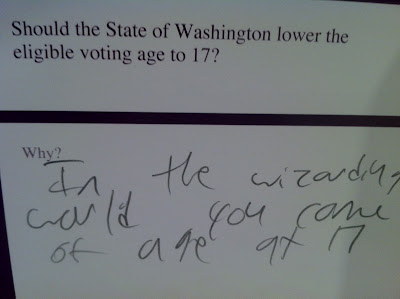 Should the State of Washington lower the
eligible voting age to 17?
Why?
In the wizarding
world you come
of age at 17